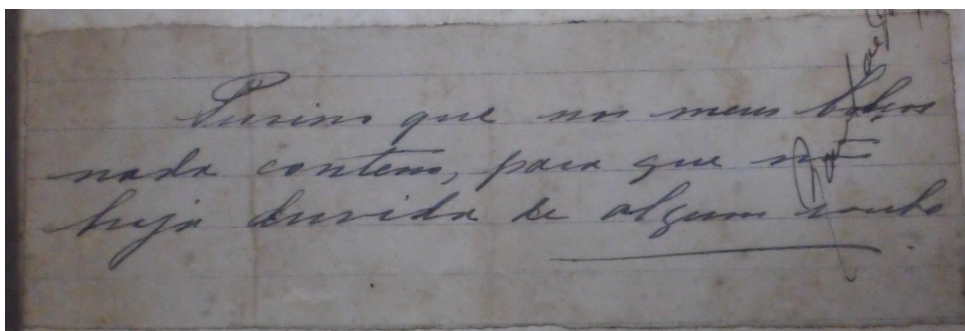 que nos meus bolsos
nada contem, para que não
haja duvida de algum roubo